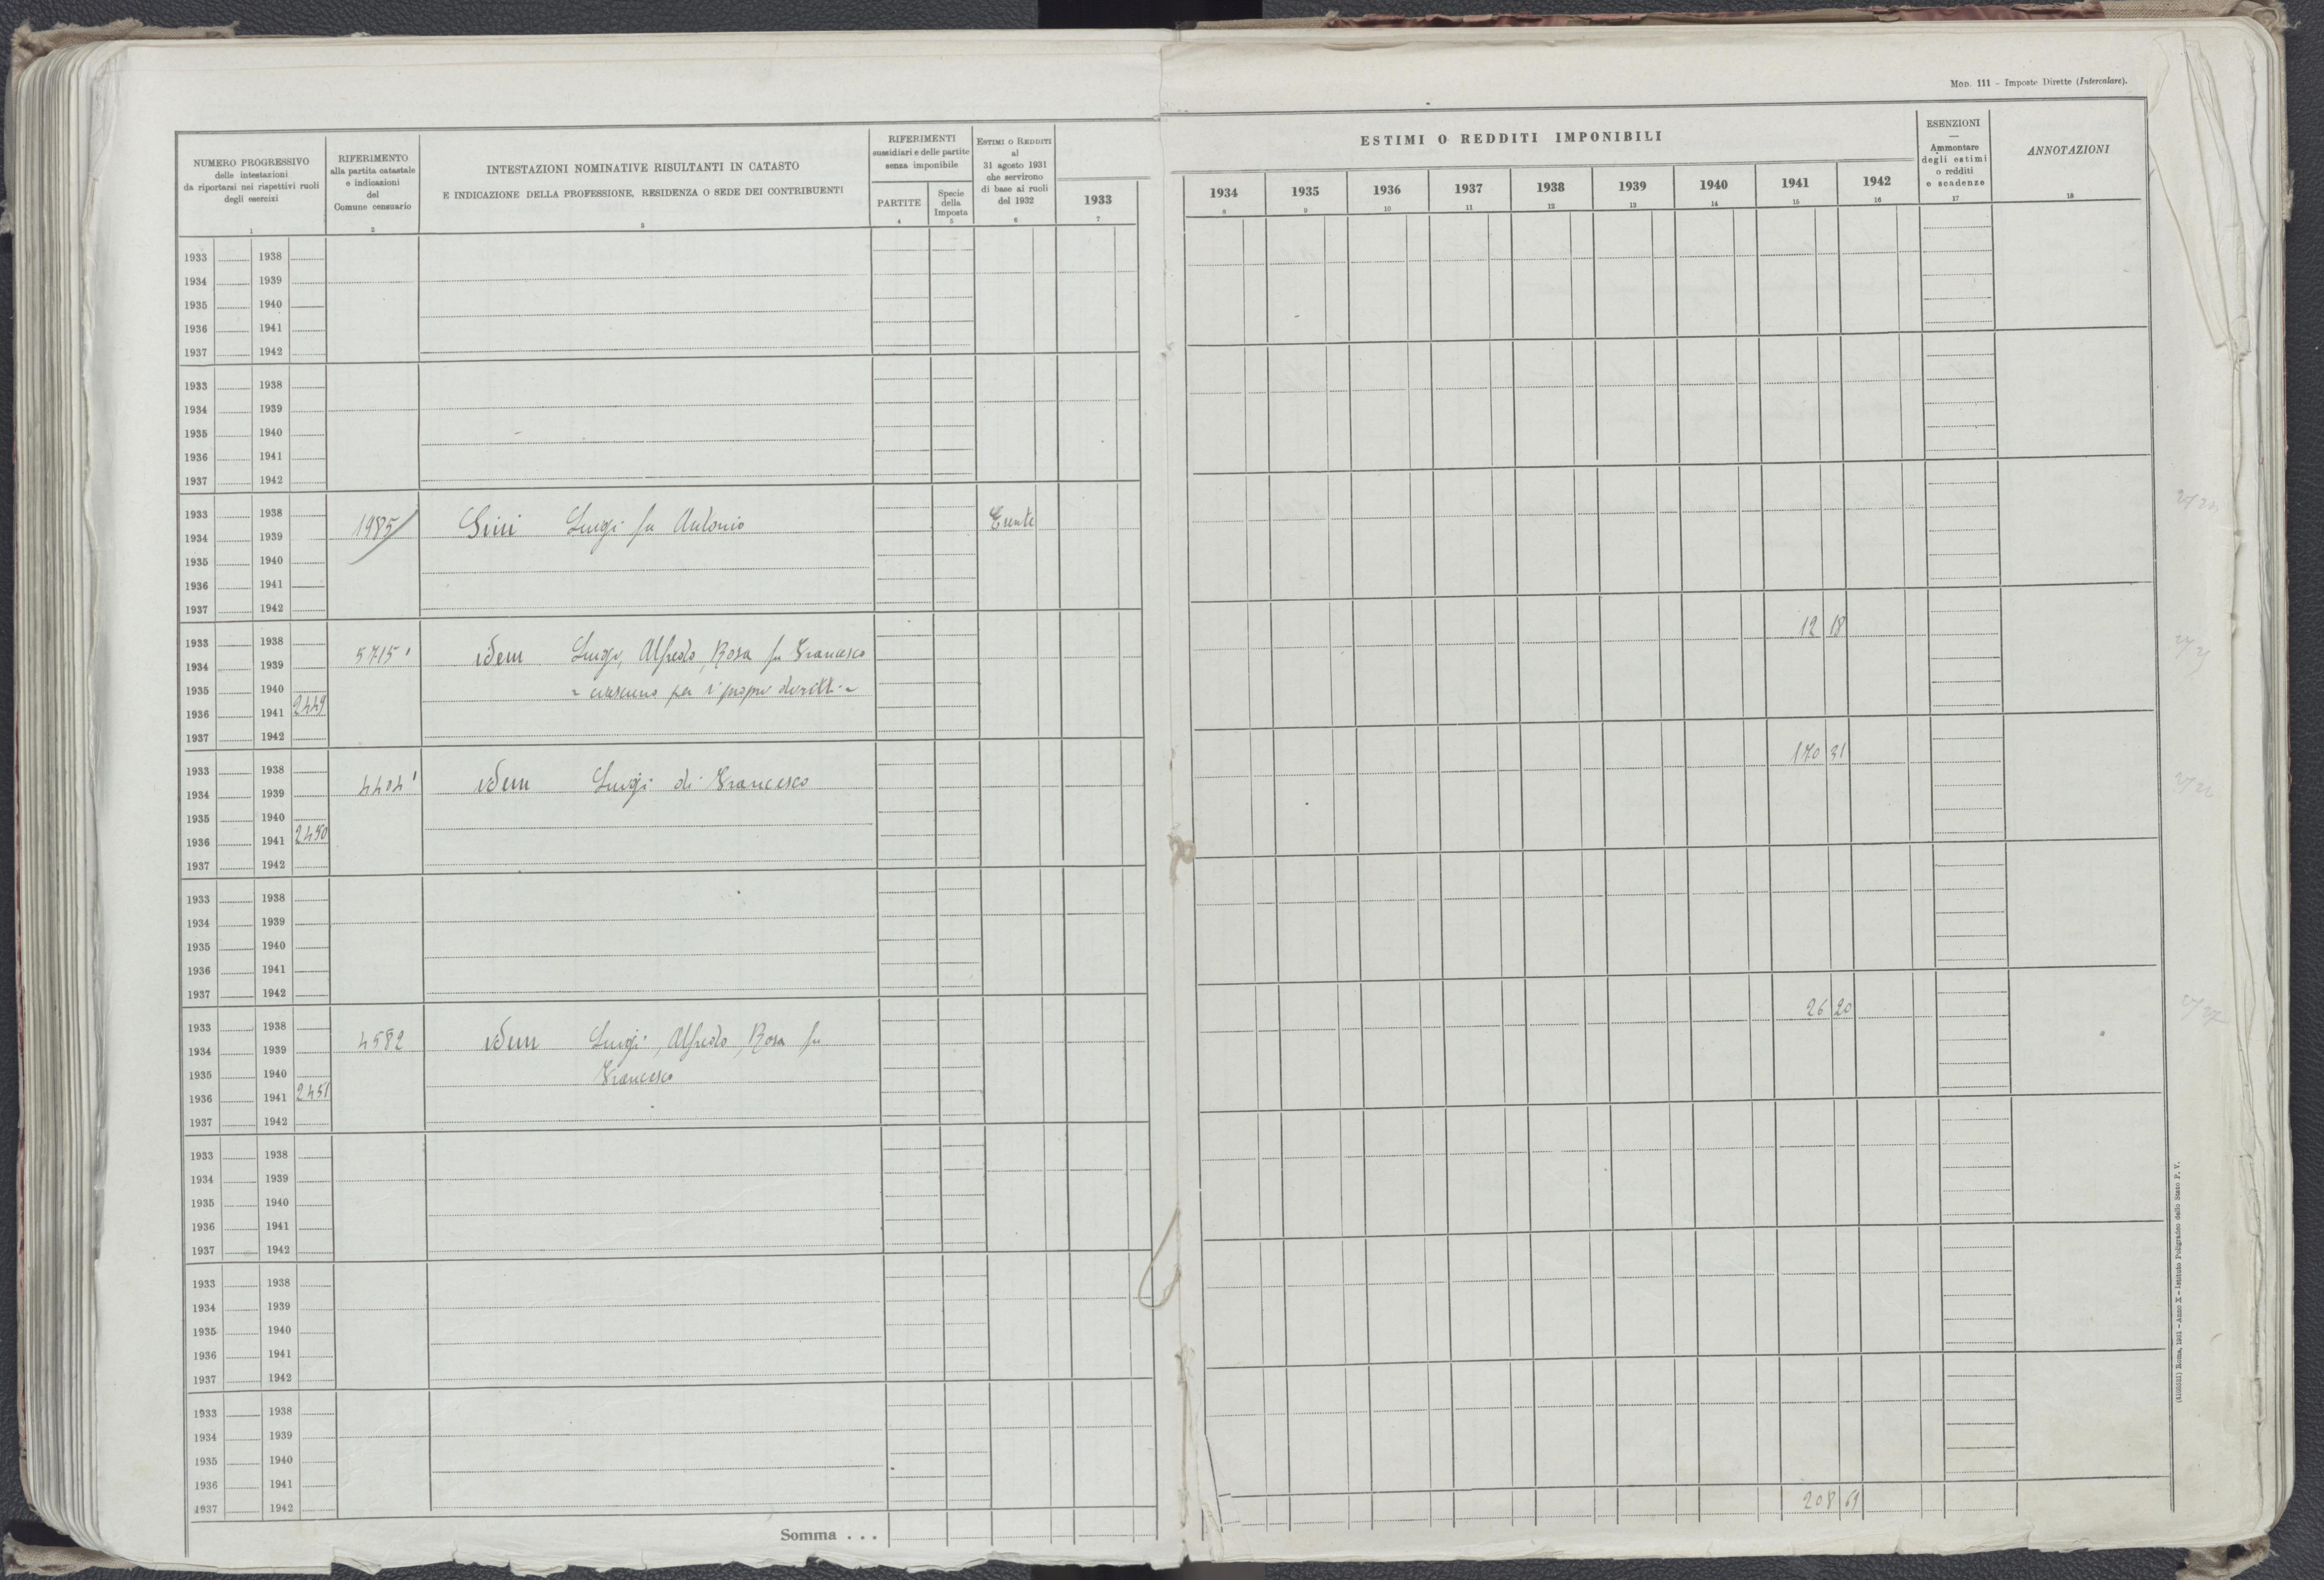 Mod. 111 - Imposte Dirette (Intercalare).
NUMERO PROGRESSIVO
delle intestazioni
da riportarsi nei rispettivi ruoli
degli esercizi
1
RIFERIMENTO
alla partita catastale
e indicazioni
del
Comune censuario
2
INTESTAZIONI NOMINATIVE RISULTANTI IN CATASTO
E INDICAZIONE DELLA PROFESSIONE, RESIDENZA O SEDE DEI CONTRIBUENTI
3
RIFERIMENTI
sussidiari e delle partite
senza imponibile
PARTITE
4
Specie
della
Imposta
5
ESTIMI O REDDITI
al
31 agosto 1931
che servirono
di base ai ruoli
del 1932
6
1933
7
ESTIMI O REDDITI IMPONIBILI
1934 1935 1936 1937 1938 1939 1940 1941 1942
8 9 10 11 12 13 14 15 16
ESENZIONI
—
Ammontare
degli estimi
o redditi
e scadenze
17
ANNOTAZIONI
18
1933 1938
1934 1939
1935 1940
1936 1941
1937 1942
1933 1938
1934 1939
1935 1940
1936 1941
1937 1942
1933 1938
1934 1939 1985 Luigi fu Antonio Esente
1935 1940
1936 1941
1937 1942
1933 1938 12 18
1934 1939 5715 idem Luigi, Alfredo, Rosa fu Francesco
1935 1940 - ciascuno per i propri diritti -
1936 1941 2449
1937 1942
1933 1938 170 31
1934 1939 4404 idem Luigi di Francesco
1935 1940
1936 1941 2450
1937 1942
1933 1938
1934 1939
1935 1940
1936 1941
1937 1942
1933 1938 26 20
1934 1939 4582 idem Luigi, Alfredo, Rosa fu
1935 1940 Francesco
1936 1941 2451
1937 1942
1933 1938
1934 1939
1935 1940
1936 1941
1937 1942
1933 1938
1934 1939
1935 1940
1936 1941
1937 1942
1933 1938
1934 1939
1935 1940
1936 1941
1937 1942
Somma . . . 208 69
(4103531) Roma, 1931 - Anno X - Istituto Poligrafico dello Stato P. V.